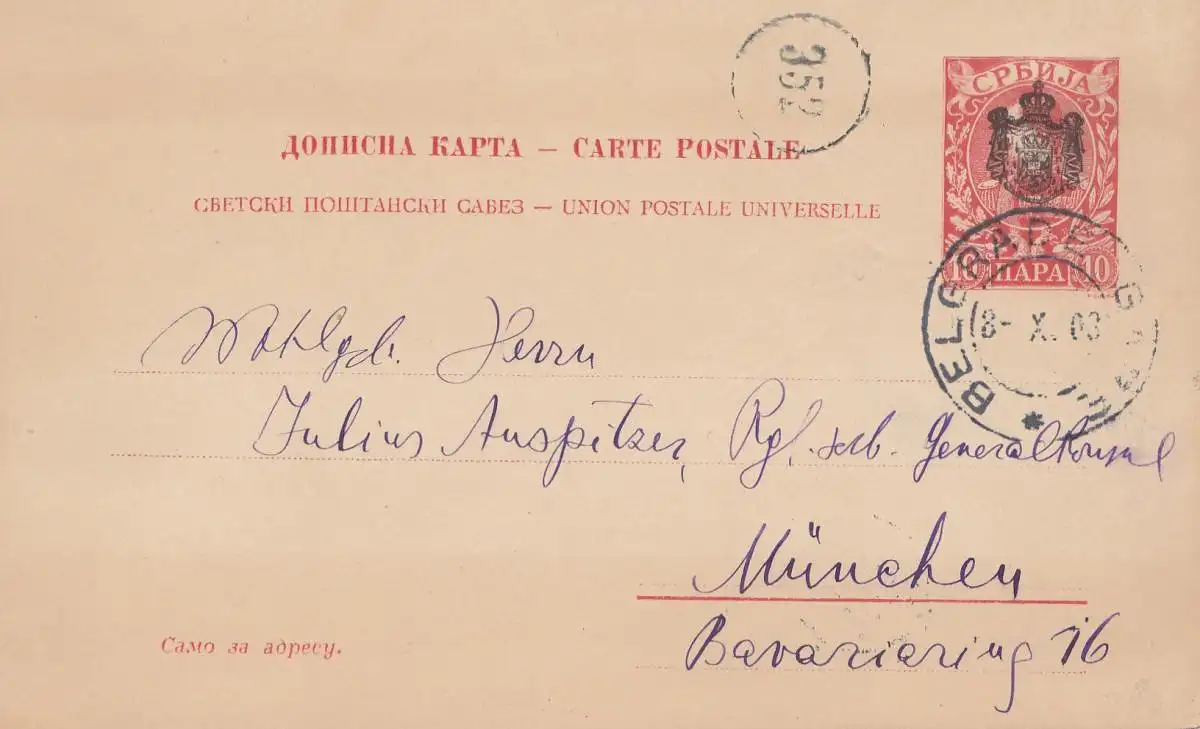 352
СРБИЈА
ДОПИСНА КАРТА — CARTE POSTALE
СВЕТСКИ ПОШТАНСКИ САВЕЗ — UNION POSTALE UNIVERSELLE
10 ПАРА 10
BELGRADE GARE
8-X.03
Wohlgeb. Herrn
Julius Auspitzer, Kgl. serb. Generalkonsul
München
Bavariaring 16
Само за адресу.